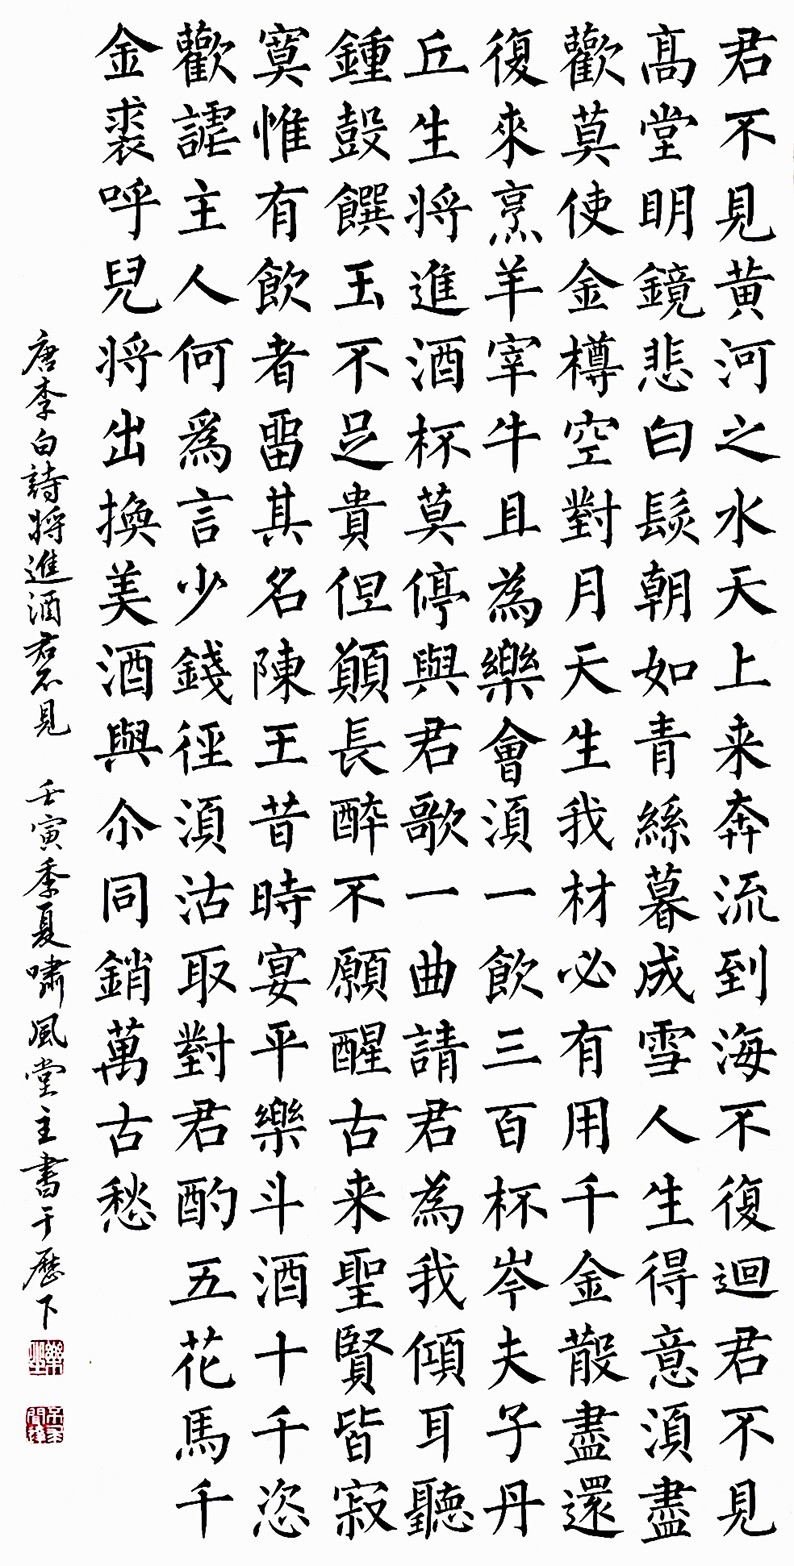 君不見黄河之水天上来奔流到海不復迴君不見
髙堂明鏡悲白髮朝如青絲暮成雪人生得意湏盡
歡莫使金樽空對月天生我材必有用千金散盡還
復來烹羊宰牛且為樂會湏一飲三百杯岑夫子丹
丘生將進酒杯莫停與君歌一曲請君為我傾耳聽
鍾鼓饌玉不足貴但願長醉不願醒古来聖賢皆寂
寞惟有飲者留其名陳王昔時宴平樂斗酒十千恣
歡謔主人何爲言少錢徑湏沽取對君酌五花馬千
金裘呼兒將出換美酒與尒同銷萬古愁
唐李白詩將進酒君不見 壬寅季夏嘯風堂主書于歷下